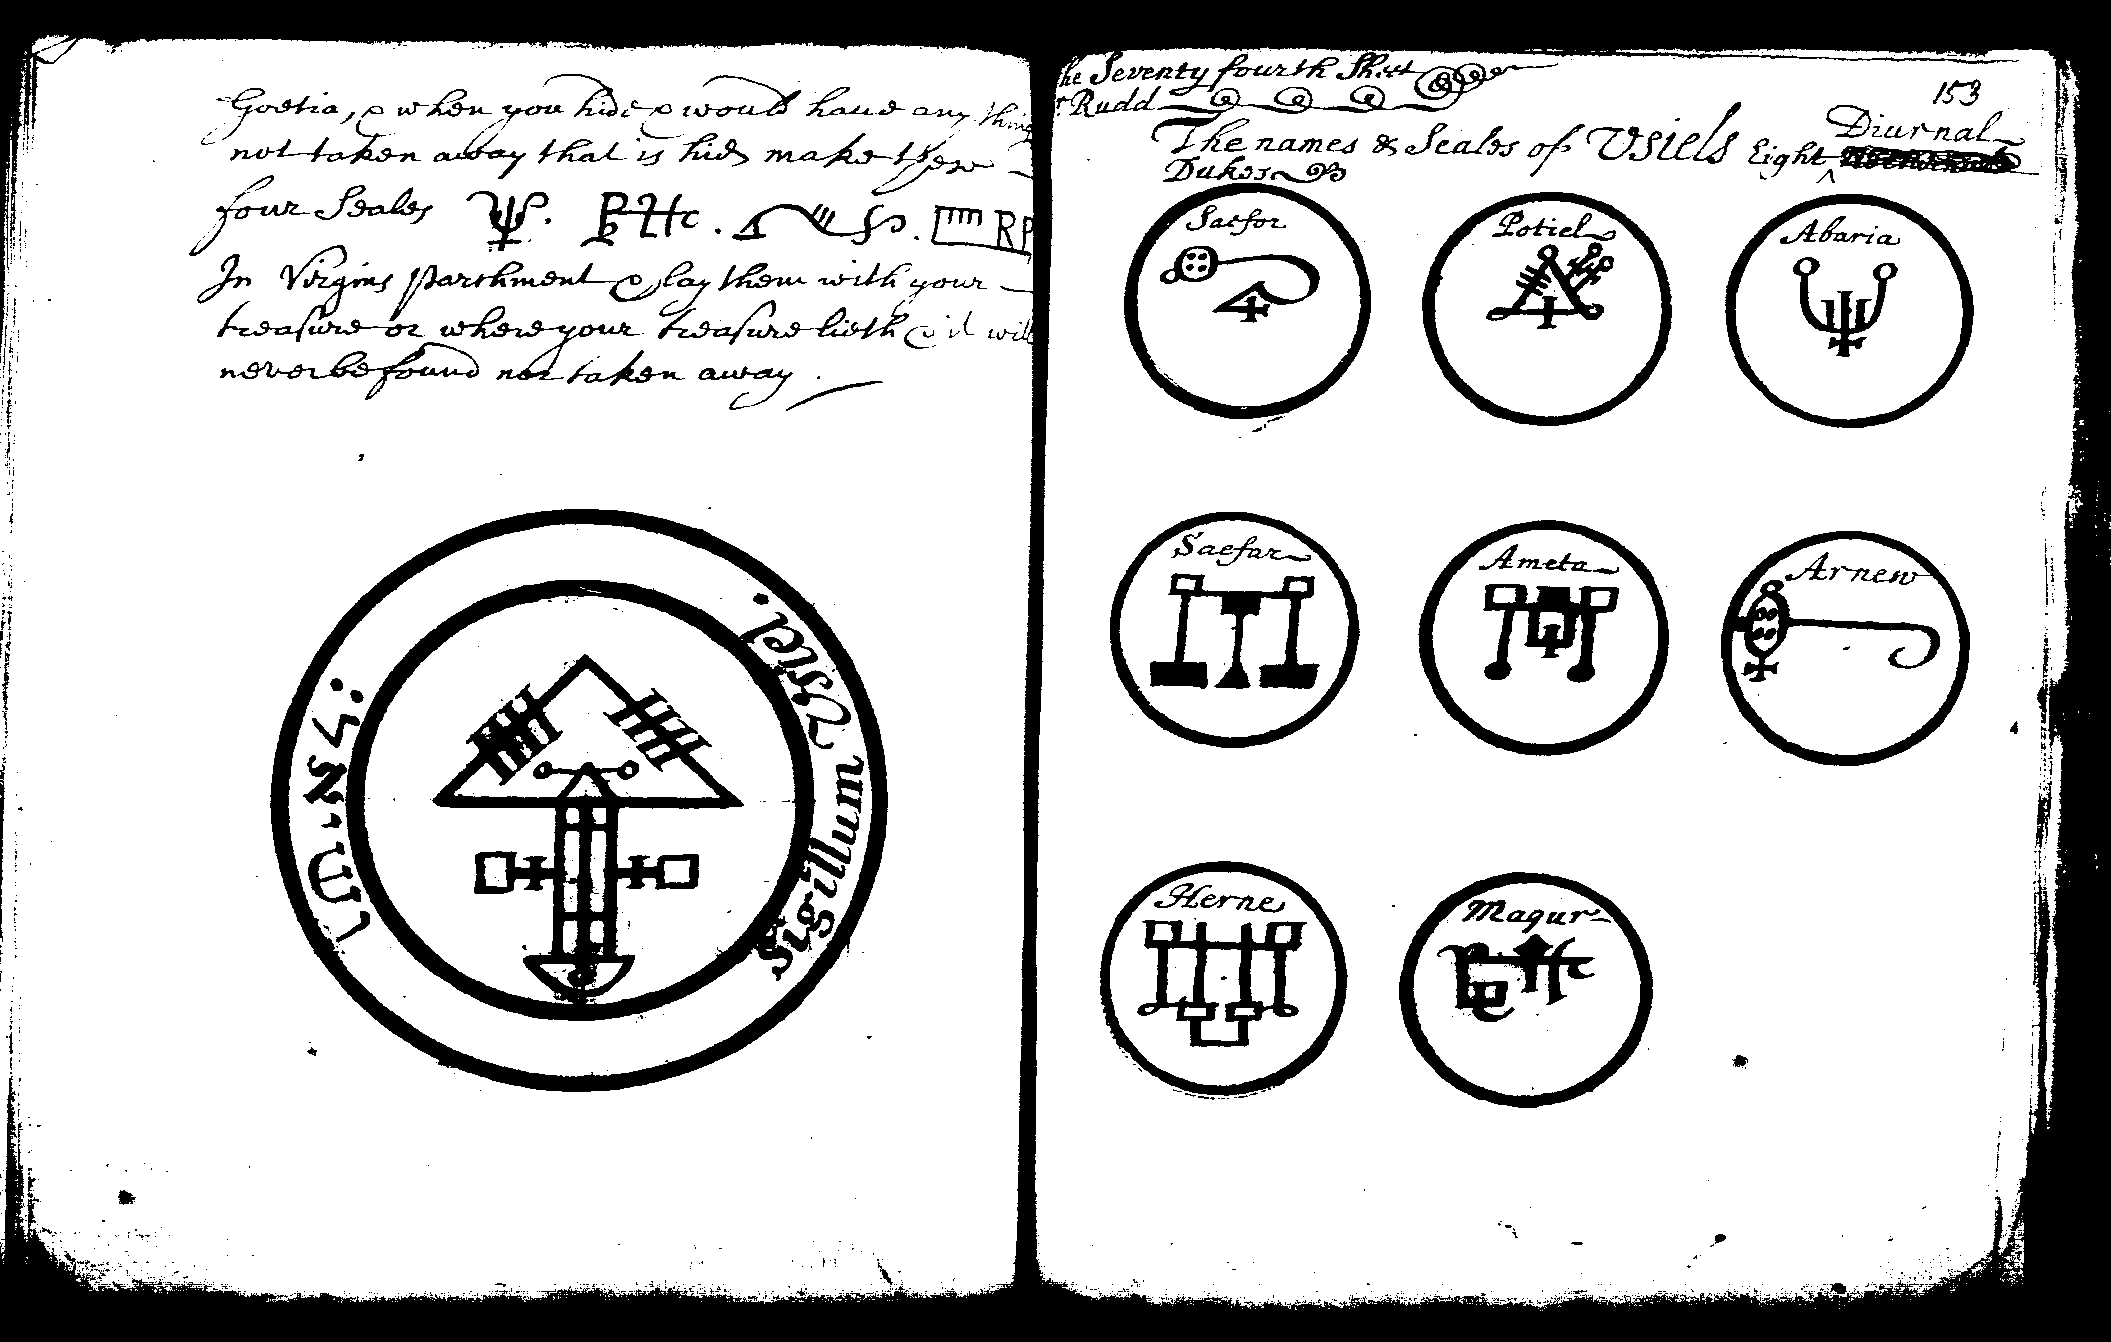 Goetia, & when you hide & would haue any thing
not taken away that is hid make these
four Seales
RP
In Virgins parchment & lay them with your
treasure or where your treasure lieth & it will
never be found nor taken away.
Sigillum Vsiel.
ושיאל:
he Seventy fourth Sheet
r Rudd
153
The names & Seales of Vsiels Eight Diurnal
Dukes
Saefor
Potiel
Abaria
Saefar
Ameta
Arnew
Herne
Maqur